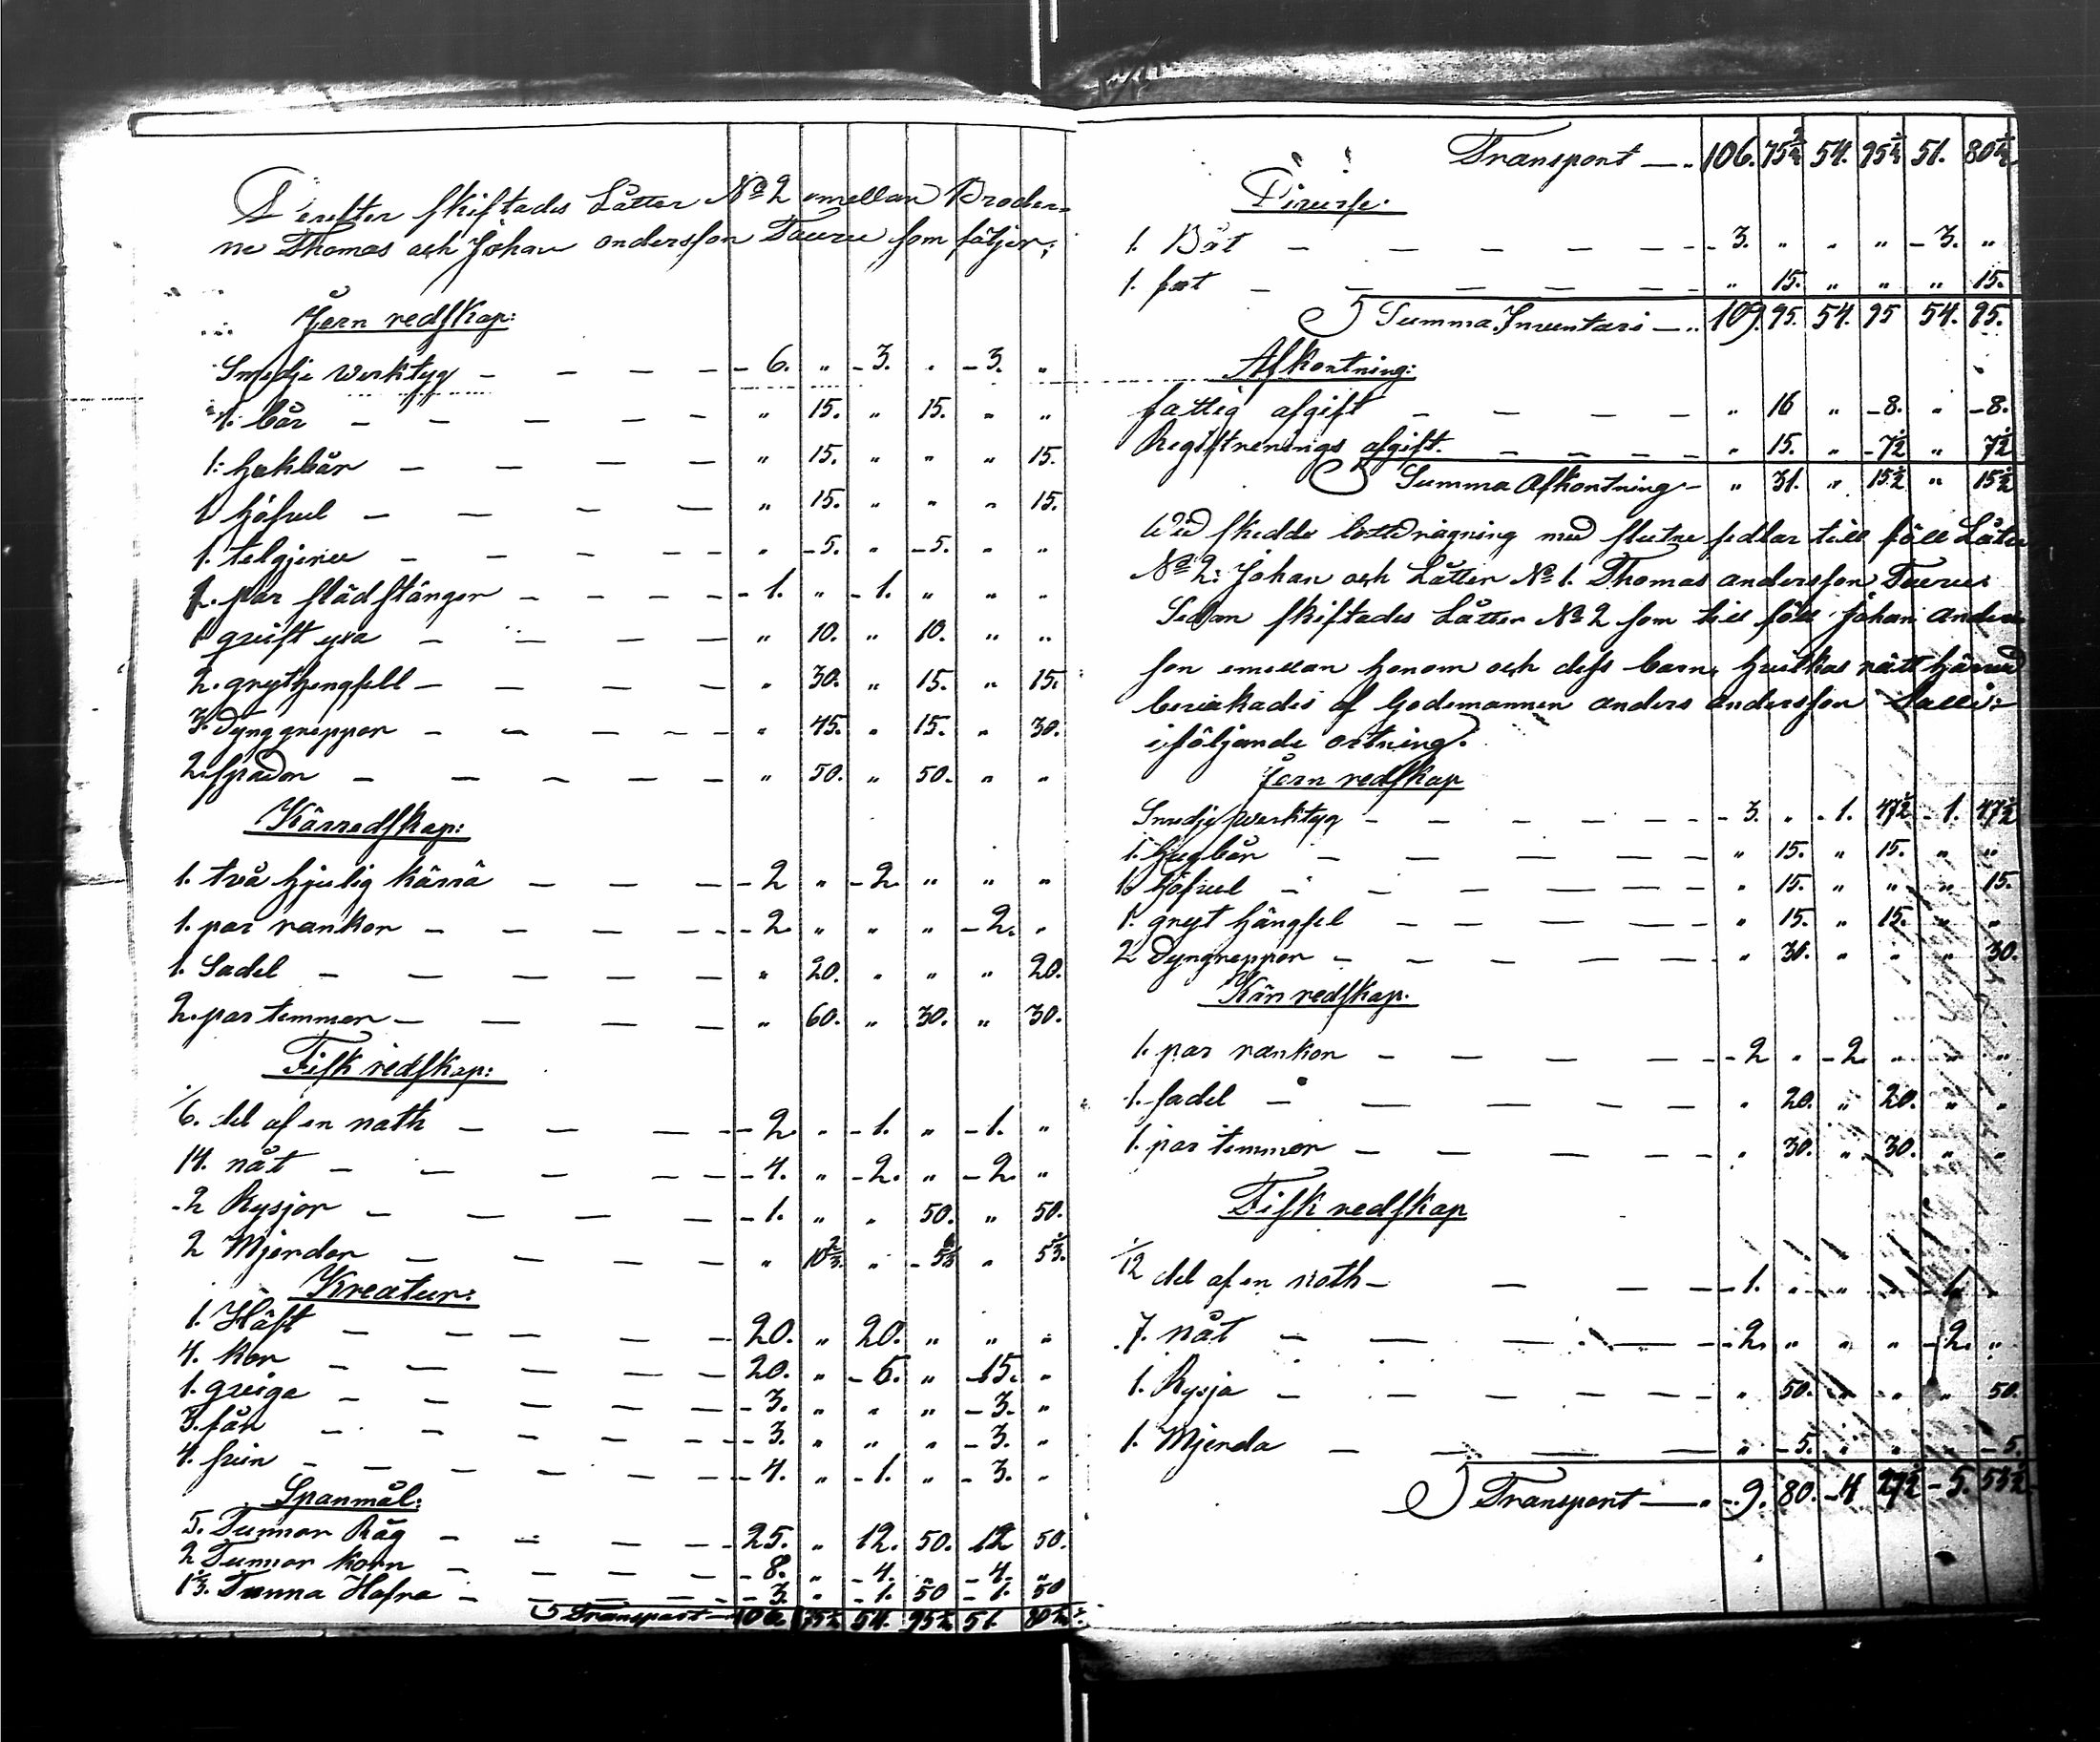 Derefter skiftades Låtter No 2 emellan Bröder-
ne Thomas och Johan andersson Tauru som följer;
Jern redskap:
Smedje werktyg — — — — 6. " 3. " 3. "
1. bår — — — — — " 15. " 15. " "
1. hakbår — — — — " 15. " " " 15.
1 höfvel — — — — " 15. " " " 15.
1. telgjern — — — — " 5. " 5. " "
2. par slädstänger — — — — 1. " 1. " " "
1 — — — — " 10. " 10. " "
2. grythengsell — — — — " 30. " 15. " 15.
3. Dynggreppor — — — — " 45. " 15. " 30.
2. spador — — — — — " 50. " 50. " "
Körredskap:
1. två hjulig kärrä — — — 2 " 2. " " "
1. par rankor — — — — 2. " " " 2. "
1. Sadel — — — — — " 20. " " " 20.
2. par temmor — — — — " 60. " 30. " 30.
Fisk redskap:
1/6. del af en noth — — — 2. " 1. " 1. "
14. nåt — — — — 4. " 2. " 2. "
2 Rysjor — — — — 1. " " 50. " 50.
2 Mjerdor — — — — " 10 2/3. " 5 1/3 " 5 1/3.
Kreatur:
1. Häst — — — — — 20. " 20. " " "
4. kor — — — — — 20. " 5. " 15. "
1. qviga — — — — — 3. " " " 3. "
3. får — — — — — 3. " " " 3. "
4. svin — — — — — 4. " 1. " 3. "
Spanmål:
5. Tunnor Råg — — — — 25. " 12. 50. 12 50.
2 Tunnor korn — — — — 8. " 4. " 4. "
1 1/3. Tunna Hafra — — — — 3. " 1. 50 1. 50
Transport — 106. 75 2/3 54. 95 1/3 51. 80 1/3
Transport — 106. 75 2/3 54. 95 1/3 51. 80 1/3
Diverse.
1. Båt — — — — — 3. " " " 3. "
1. fat — — — — — " 15. " " " 15.
Summa Inventari — 109. 95. 54. 95 54. 95.
Afkortning:
fattig afgift — — — — " 16 " 8. " 8.
Registrerings afgift. — — — — " 15. " 7 1/2 " 7 1/2
Summa Afkortning — " 31. " 15 1/2 " 15 1/2
Wid skedde lottdragning med slutne sedlar till föll Låtter
No 2: Johan och Låtter No 1. Thomas andersson Tauru:
Sedan skiftades Låtter No 2 som till föll Johan anders
son emellan honom och dess barn, hvilkas rätt härvid
bevakades af Godemannen anders andersson
i följande ortning.
Jern redskap
Smedje werktyg — — — — 3. " 1. 47 1/2 1. 47 1/2
1. hugbår — — — — " 15. " 15. " "
1. höfvel — — — — " 15. " " " 15.
1. gryt hängsel — — — — " 15. " 15. " "
2 Dyngreppor — — — — " 30. " " " 30.
Kör redskap.
1. par rankor — — — — 2 " 2 " " "
1. sadel — — — — — " 20. " 20. " "
1. par temmor — — — — " 30. " 30. " "
Fisk redskap
1/12 del af en noth — — — 1. " " " 1. "
7. nåt — — — — 2. " " " 2. "
1. Rysja — — — — — " 50. " " " 50.
1. Mjerda — — — — " 5. " " " 5.
Transport — 9. 80. 4 27 1/2 5. 53 1/2